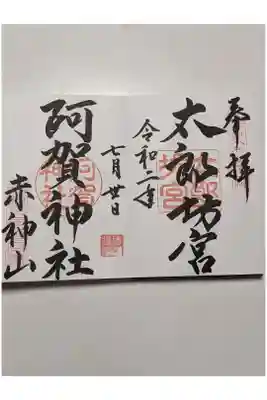 奉拝
太郎坊宮
令和二年
七月廿日
阿賀神社
赤神山